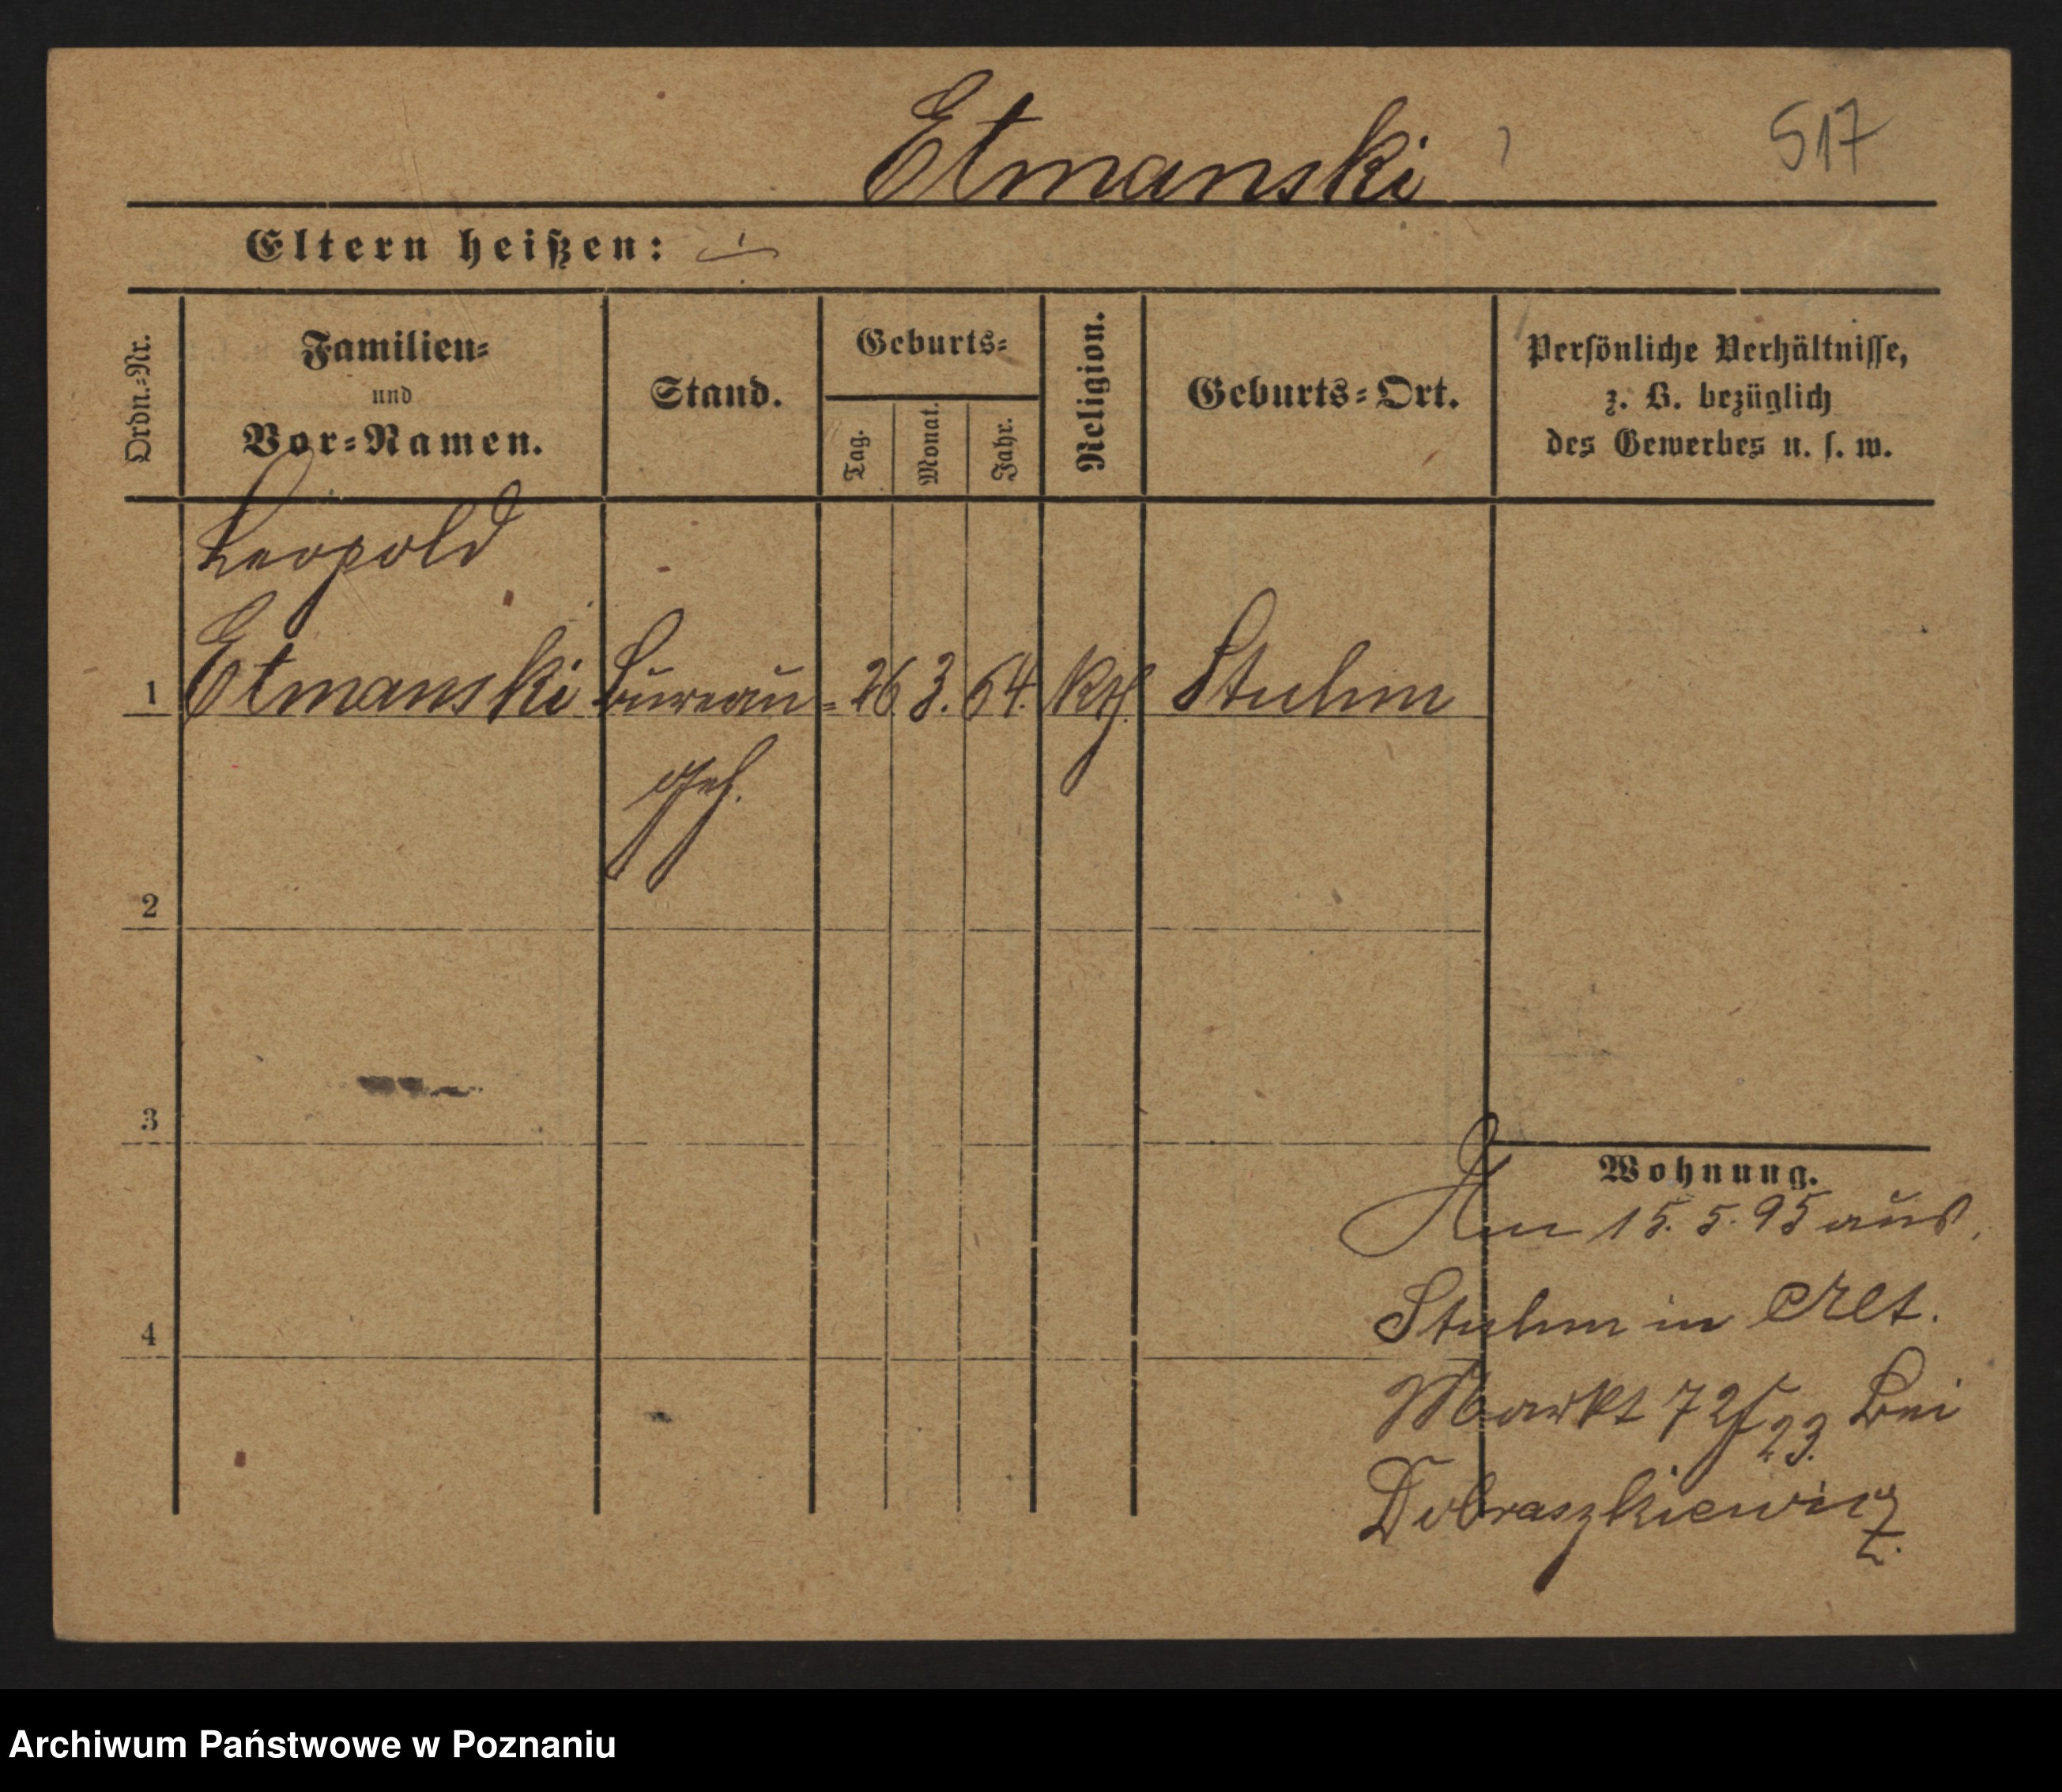 Etmanski
517
Eltern heißen:
Ordn.-Nr.
Familien-
und
Vor-Namen.
Stand.
Geburts-
Tag.
Monat.
Jahr.
Religion.
Geburts-Ort.
Persönliche Verhältnisse,
z. B. bezüglich
des Gewerbes u. s. w.
Leopold
1 Etmanski Bureau- 26. 3. 64. Kth. Stuhm
Geh.
2
3
4
Wohnung.
Am 15. 5. 95 aus
Stuhm in Alt.
Markt 72/23. bei
Dobraszkiewicz
Archiwum Państwowe w Poznaniu